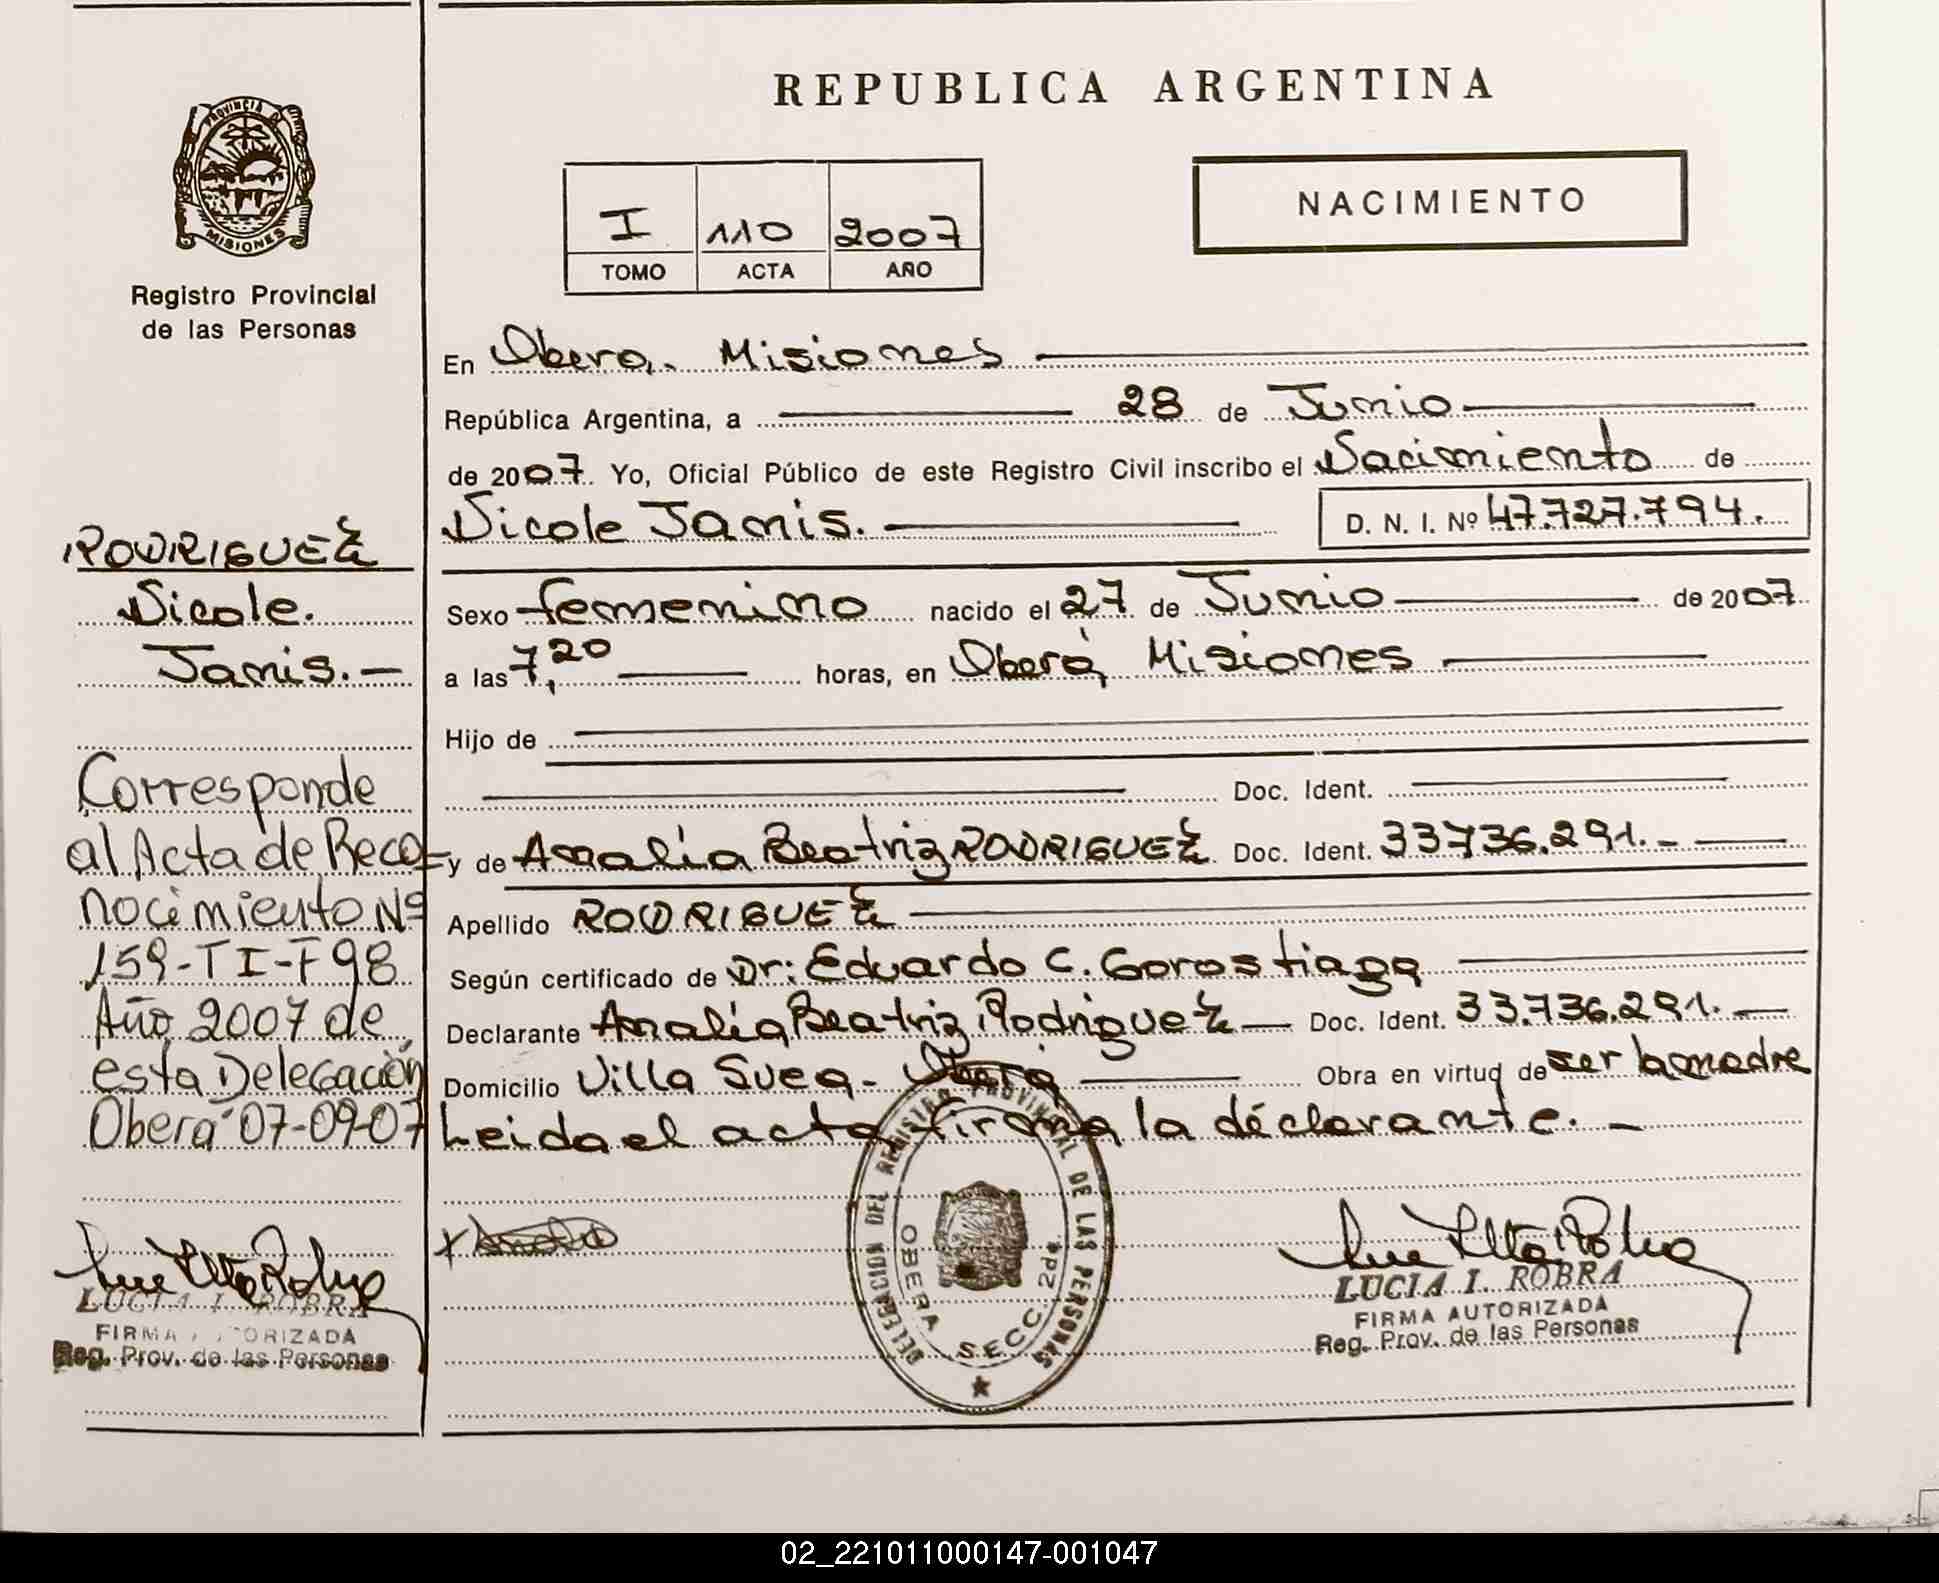 REPUBLICA ARGENTINA
PROVINCIA DE MISIONES
Registro Provincial
de las Personas
I 110 2007
TOMO ACTA AÑO
NACIMIENTO
En Obera,. Misiones
República Argentina, a 28 de Junio
de 2007. Yo, Oficial Público de este Registro Civil inscribo el Nacimiento de
Nicole Janis. D. N. I. Nº 47.727.794.
Sexo femenino nacido el 27 de Junio de 2007.
a las 7,20 horas, en Oberá, Misiones
Hijo de
Doc. Ident.
y de Amalia Beatriz RODRIGUEZ Doc. Ident. 33736.291.-
Apellido RODRIGUEZ
Según certificado de Dr: Eduardo C. Gorostiaga
Declarante Amalia Beatriz Rodriguez Doc. Ident. 33.736.291.
Domicilio Villa Suea- Obera Obra en virtud de ser la madre
Leida el acta firma la declarante.-
RODRIGUEZ
Nicole.
Janis.-
Corresponde
al Acta de Reco=
nocimiento Nº
159-TI-F98
Año 2007 de
esta Delegación
Oberá 07-09-07
LUCIA I. ROBRA
FIRMA AUTORIZADA
Reg. Prov. de las Personas
DELEGACION DEL REGISTRO PROVINCIAL DE LAS PERSONAS
OBERA SECC. 2da.
LUCIA I. ROBRA
FIRMA AUTORIZADA
Reg. Prov. de las Personas
02_221011000147-001047